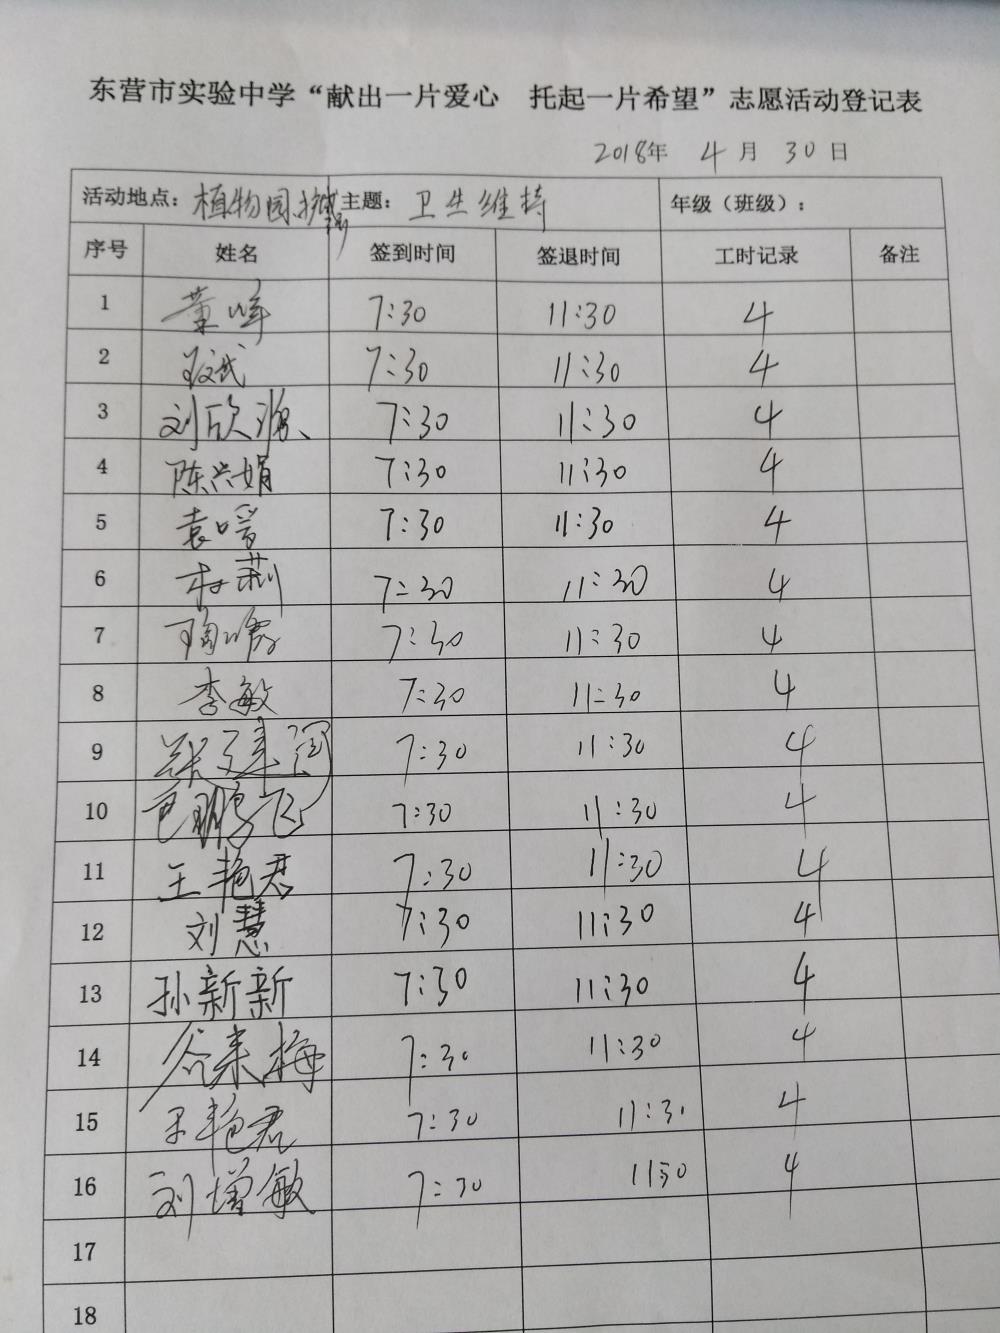 东营市实验中学“献出一片爱心　托起一片希望”志愿活动登记表
2018年 4月 30日
活动地点：植物园 主题：卫生维持 年级（班级）：
序号 姓名 签到时间 签退时间 工时记录 备注
1 董峰 7:30 11:30 4
2 7:30 11:30 4
3 刘欣 7:30 11:30 4
4 陈兴娟 7:30 11:30 4
5 袁 7:30 11:30 4
6 杜莉 7:30 11:30 4
7 7:30 11:30 4
8 李敏 7:30 11:30 4
9 7:30 11:30 4
10 鹏飞 7:30 11:30 4
11 王艳君 7:30 11:30 4
12 刘慧 7:30 11:30 4
13 孙新新 7:30 11:30 4
14 谷来梅 7:30 11:30 4
15 王艳君 7:30 11:30 4
16 刘增敏 7:30 11:30 4
17
18